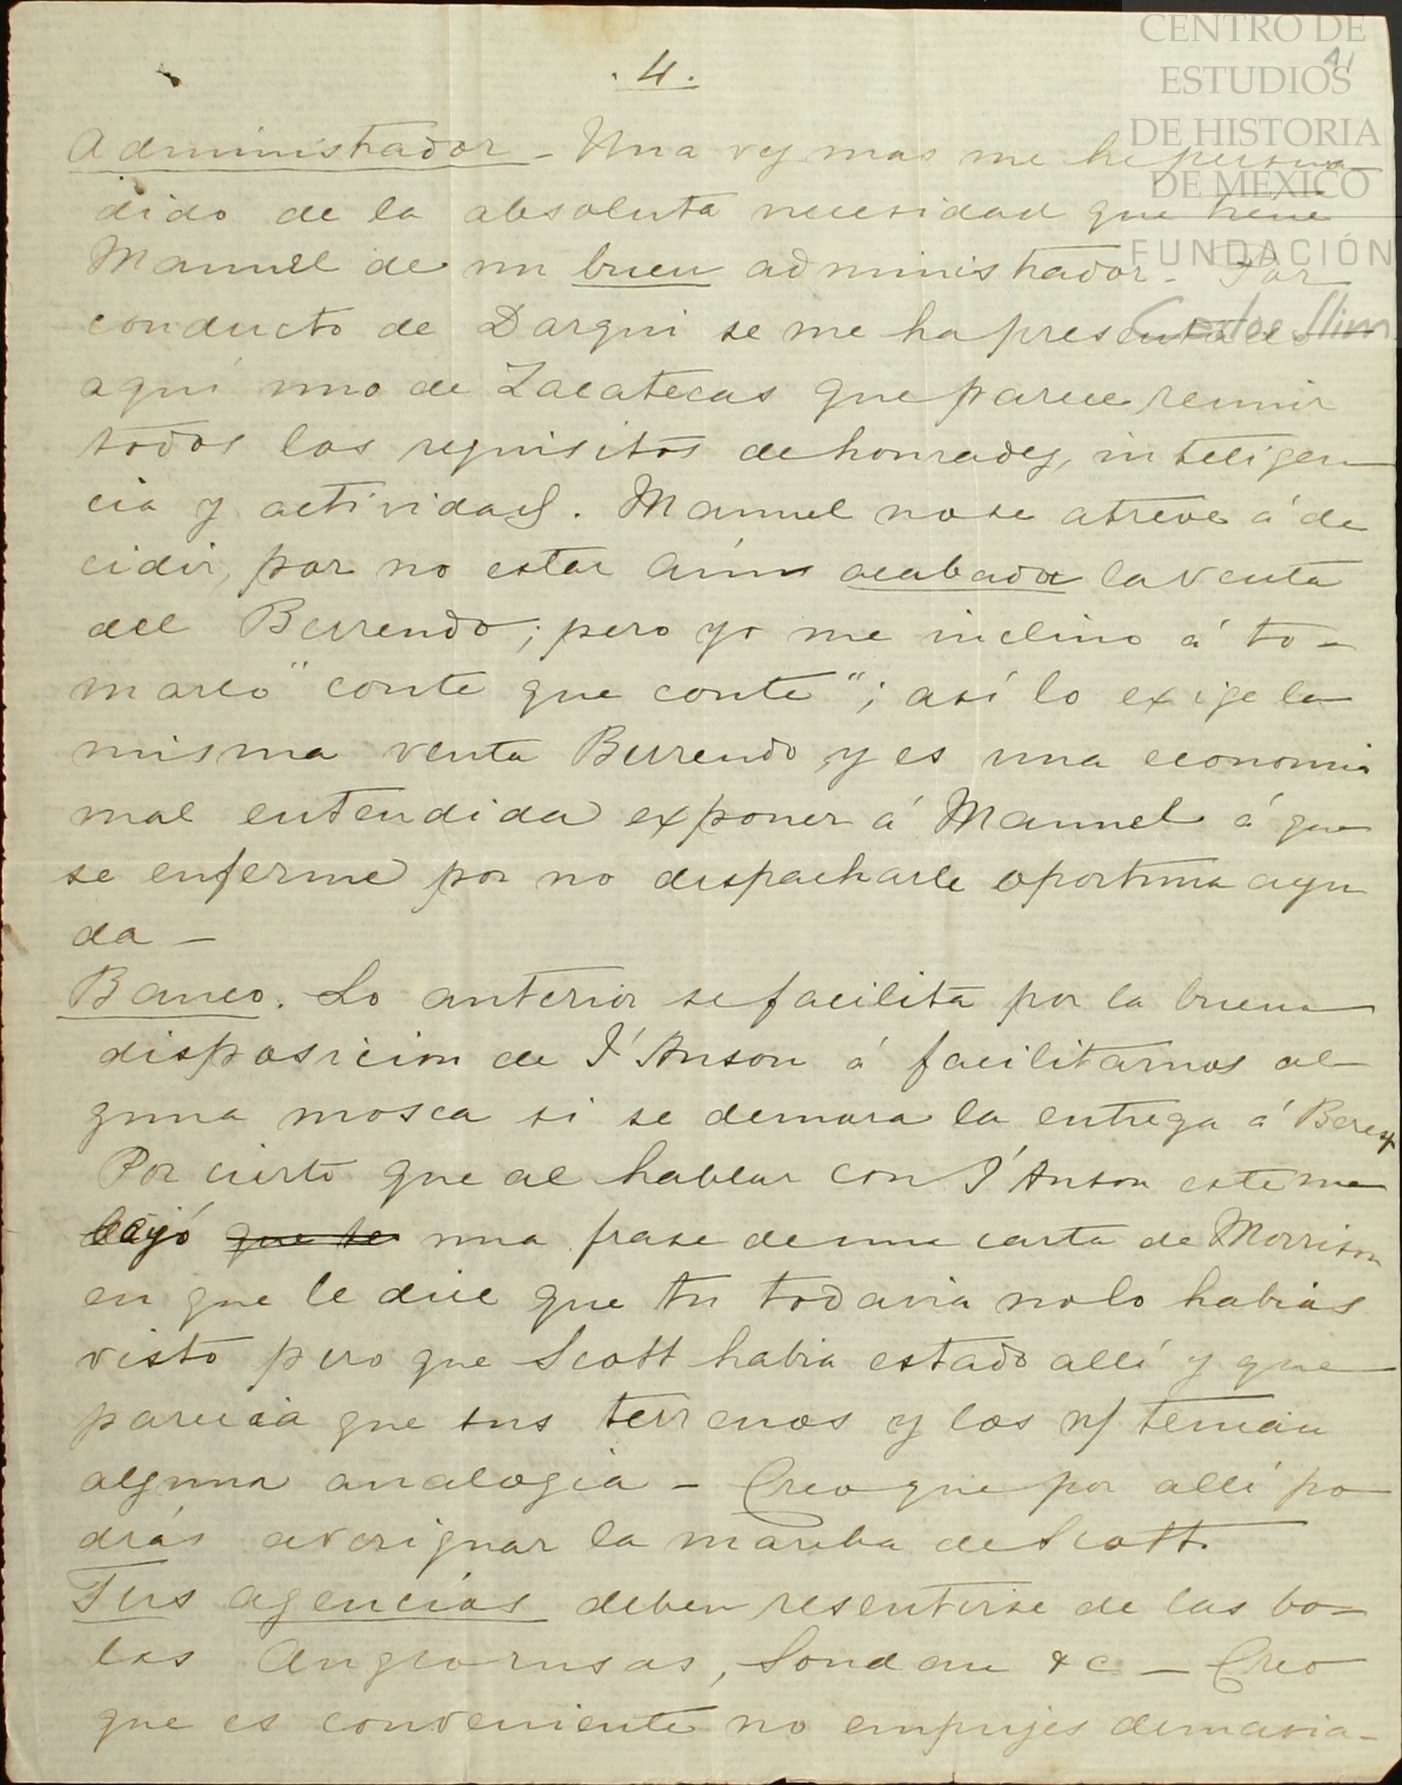 CENTRO DE
ESTUDIOS
DE HISTORIA
DE MEXICO
FUNDACIÓN
Carlos Slim
41
. 4 .
Administrador - Una vez mas me he persua-
dido de la absoluta necesidad que tiene
Manuel de un buen administrador - Por
conducto de Dargui se me ha presentado
aquí uno de Zacatecas que parece reunir
todos los requisitos de honradez, inteligen
cia y actividad. Manuel no se atreve á de
cidir, por no estar aún acabada la venta
del Berrendo; pero yo me inclino á to-
marlo "conte que conte"; así lo exige la
misma venta Berrendo y es una economia
mal entendida exponer á Manuel á que
se enferme por no despacharle oportuna ayu
da -
Banco. Lo anterior se facilita por la buena
disposicion de I'Anson á facilitarnos al
guna mosca si se demora la entrega á
Por cierto que al hablar con I'Anson este me
leyó que se una frase de una carta de Morrison
en que le dice que tu todavia no lo habias
visto pero que Scott habia estado allí y que
parecia que sus terrenos y los n/ tenian
alguna analogia - Creo que por allí po
drás averiguar la marcha de Scott.
Tus agencias deben resentirse de las bo-
las Anglorusas, Soudan &c - Creo
que es conveniente no empujes demasia-